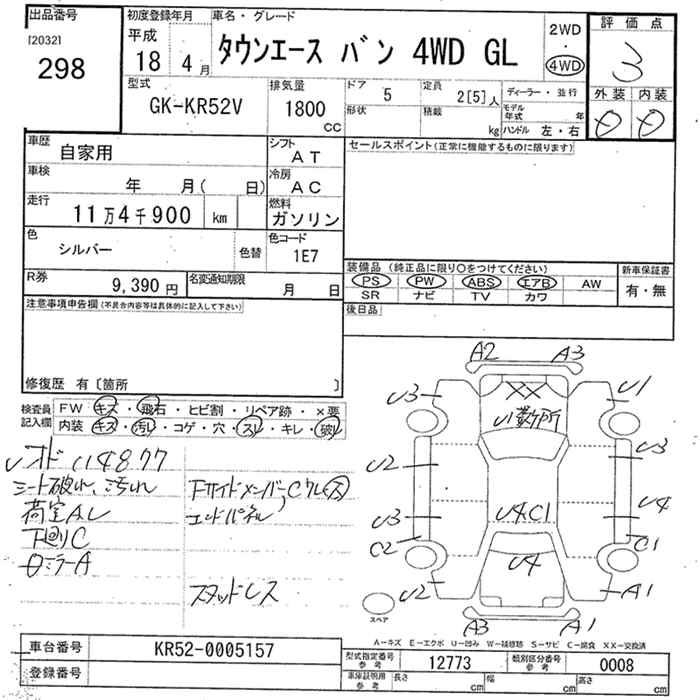 出品番号
[2032]
298
初度登録年月
平成
18 4月
車名・グレード
タウンエース バン 4WD GL
2WD
・
4WD
評価点
3
外装 内装
型式
GK-KR52V
排気量
1800
CC
ドア
5
定員
2[5]人
形状
積載
kg
ディーラー・並行
モデル年式
年
ハンドル 左・右
車歴
自家用
シフト
AT
車検
年 月( 日)
冷房
AC
走行
11万4千900 km
燃料
ガソリン
色
シルバー
色替
色コード
1E7
R券
9,390円
名変通知期限
月 日
セールスポイント(正常に機能するものに限ります)
装備品(純正品に限り○をつけてください)
PS PW ABS エアB AW
SR ナビ TV カワ
新車保証書
有・無
後日品
注意事項申告欄(不具合内容等は具体的に記入して下さい)
修復歴 有〔箇所 〕
検査員
記入欄
FW キズ・飛石・ヒビ割・リペア跡・×要
内装 キズ・汚レ・コゲ・穴・スレ・キレ・破レ
シート破れ、汚れ
荷室A.L
下廻りC
スタッドレス
A2 A3
U3 U1
XX
U数ヶ所
U2 U3
U3 U4
U4.C1
C2 C1
U4
U2 A1
A3 A1
スペア
A―キズ E―エクボ U―凹み W―補修跡 S―サビ C―腐食 XX―交換済
車台番号
KR52-0005157
登録番号
型式指定番号
参考
12773
類別区分番号
参考
0008
車庫証明用
参考
長さ cm 幅 cm 高さ cm